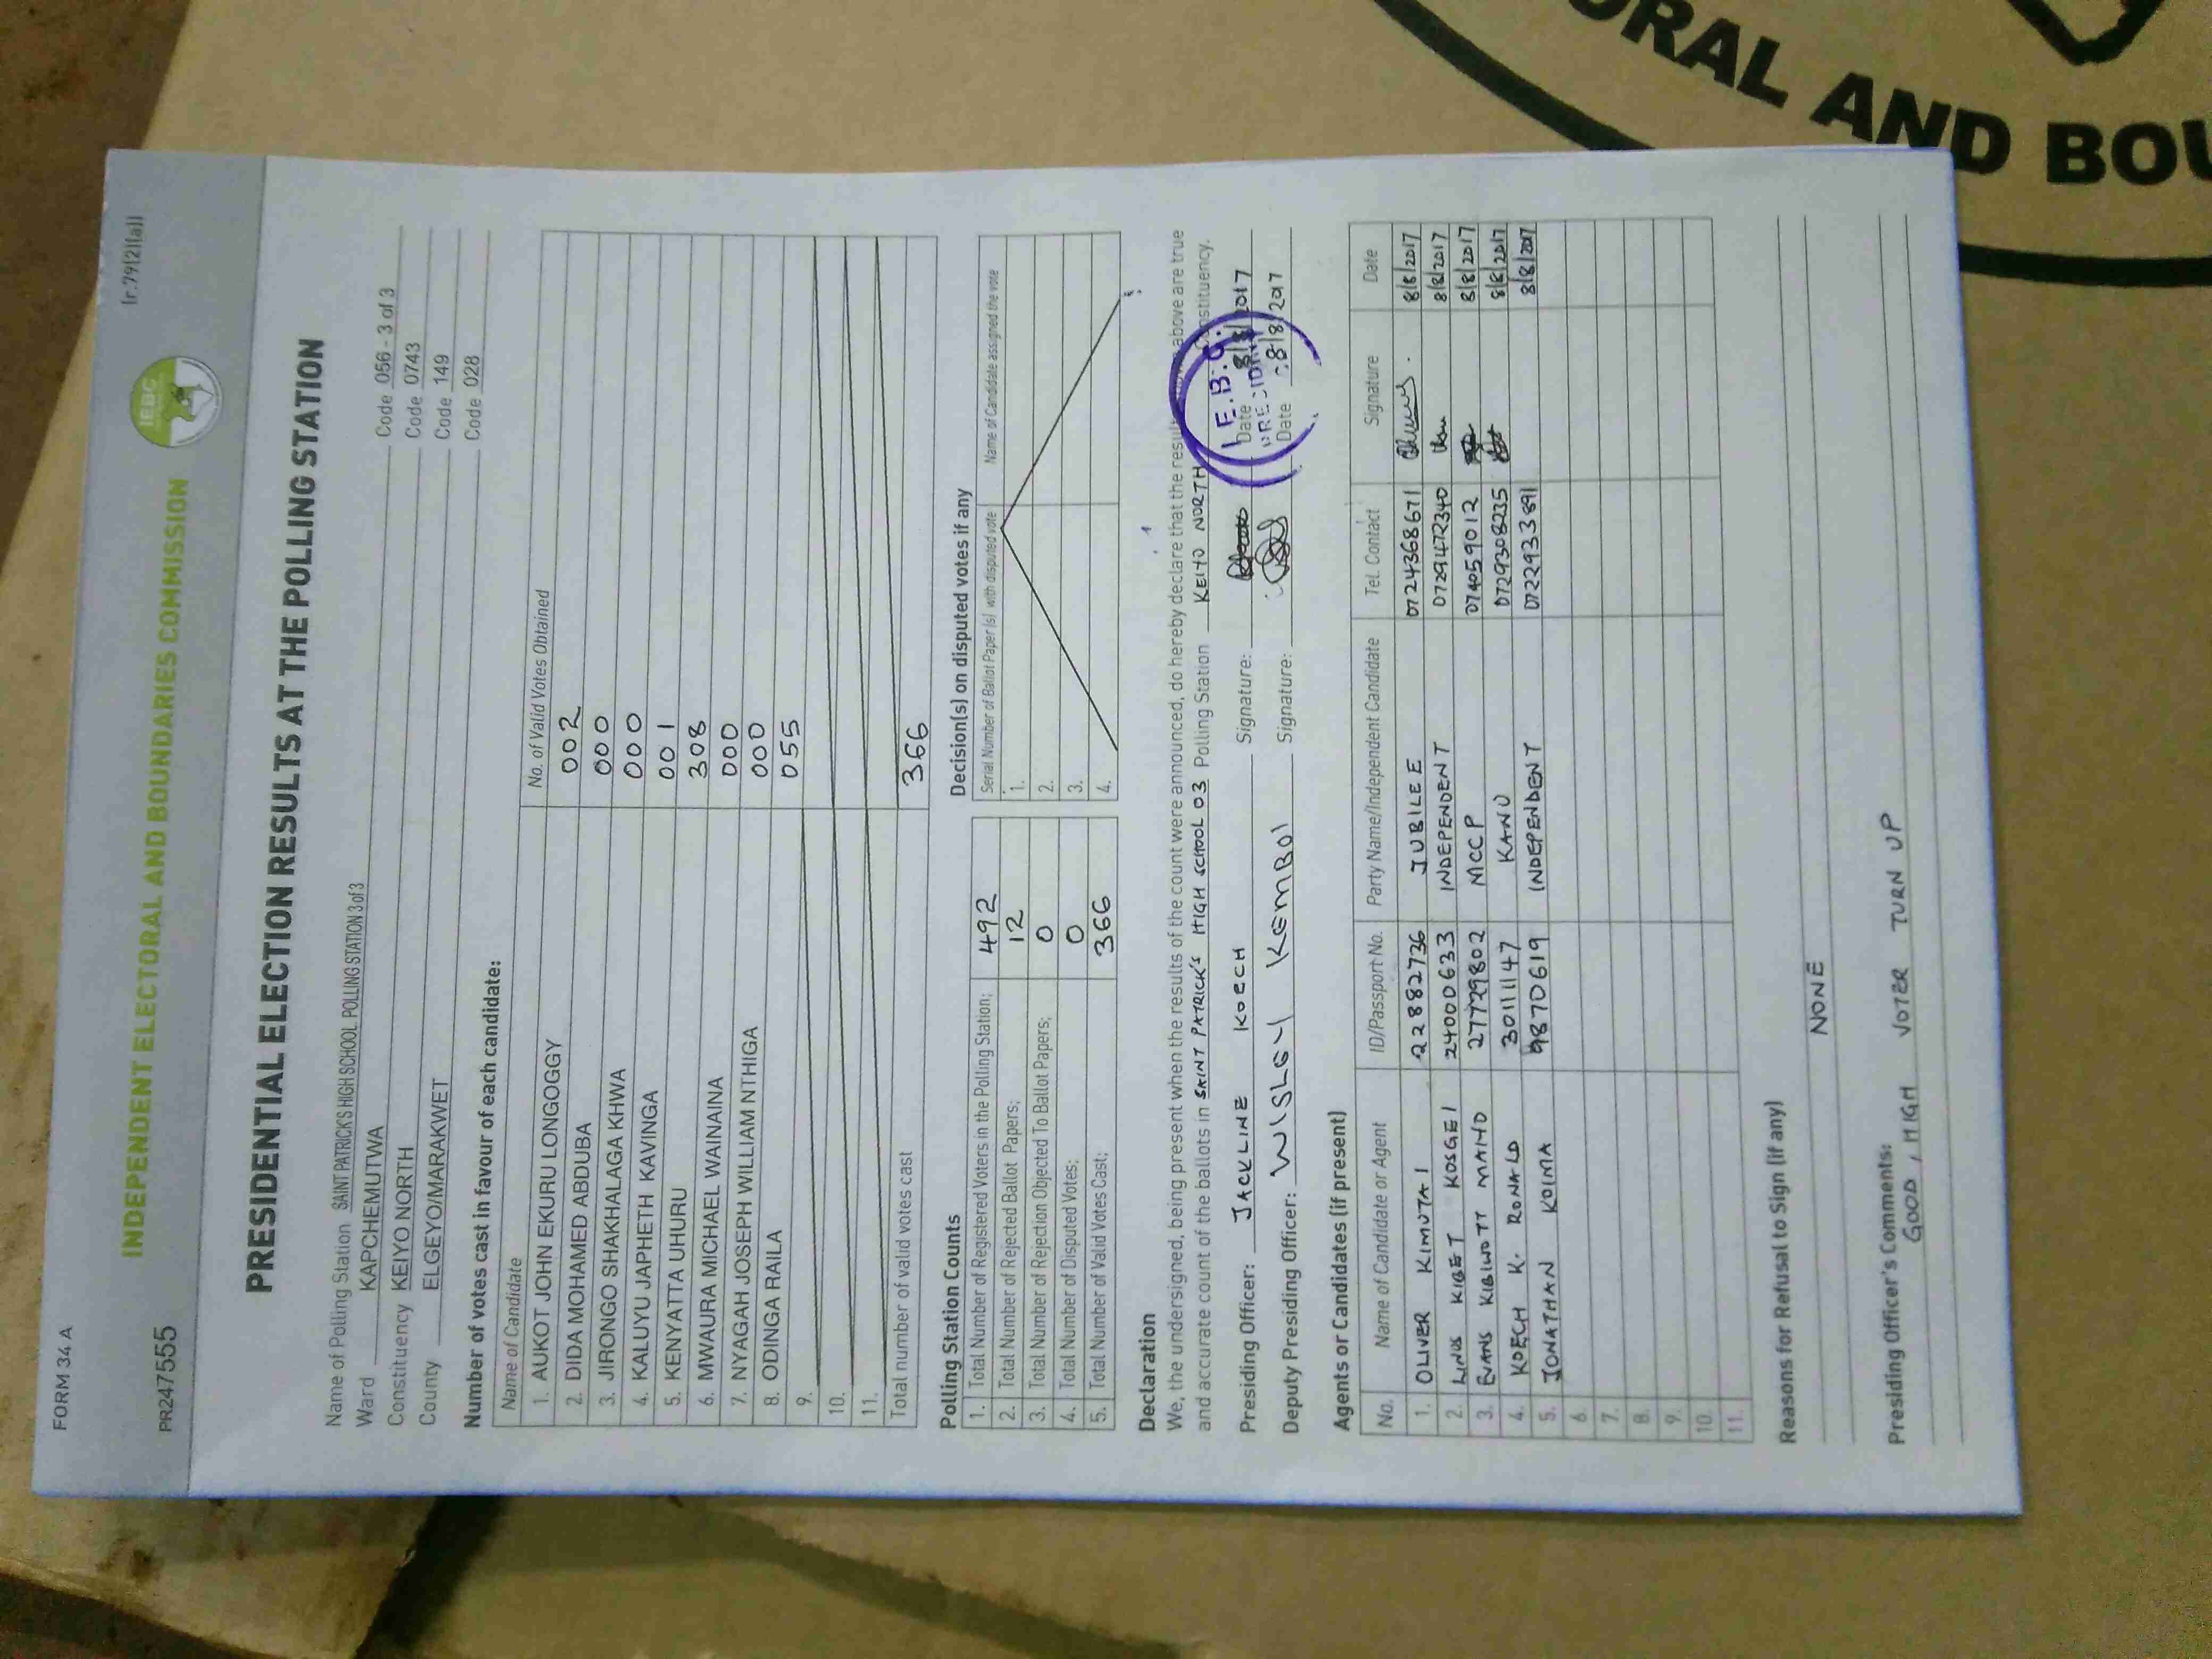 FORM 34 A
(r.79(2)(a))
IEBC
INDEPENDENT ELECTORAL AND BOUNDARIES COMMISSION
PR247555
PRESIDENTIAL ELECTION RESULTS AT THE POLLING STATION
Name of Polling Station SAINT PATRICK'S HIGH SCHOOL POLLING STATION 3 of 3 Code 056 - 3 of 3
Ward KAPCHEMUTWA Code 0743
Constituency KEIYO NORTH Code 149
County ELGEYO/MARAKWET Code 028
Number of votes cast in favour of each candidate:
Name of Candidate No. of Valid Votes Obtained
1. AUKOT JOHN EKURU LONGOGGY 002
2. DIDA MOHAMED ABDUBA 000
3. JIRONGO SHAKHALAGA KHWA 000
4. KALUYU JAPHETH KAVINGA 001
5. KENYATTA UHURU 308
6. MWAURA MICHAEL WAINAINA 000
7. NYAGAH JOSEPH WILLIAM NTHIGA 000
8. ODINGA RAILA 055
9.
10.
11.
Total number of valid votes cast 366
Polling Station Counts
1. Total Number of Registered Voters in the Polling Station; 492
2. Total Number of Rejected Ballot Papers; 12
3. Total Number of Rejection Objected To Ballot Papers; 0
4. Total Number of Disputed Votes; 0
5. Total Number of Valid Votes Cast; 366
Decision(s) on disputed votes if any
Serial Number of Ballot Paper (s) with disputed vote Name of Candidate assigned the vote
1.
2.
3.
4.
Declaration
We, the undersigned, being present when the results of the count were announced, do hereby declare that the results above are true
and accurate count of the ballots in SAINT PATRICK'S HIGH SCHOOL 03 Polling Station KEIYO NORTH Constituency.
Presiding Officer: JACKLINE KOECH Signature: Date 8/8/2017
Deputy Presiding Officer: WISLEY KEMBOI Signature: Date 8/8/2017
I.E.B.C.
Agents or Candidates (if present)
No. Name of Candidate or Agent ID/Passport No. Party Name/Independent Candidate Tel. Contact Signature Date
1. OLIVER KIMUTAI 22882736 JUBILEE 0724368671 8/8/2017
2. LINUS KIBET KOSGEI 24000633 INDEPENDENT 0729472340 8/8/2017
3. EVANS KIBIWOTT MAIYO 27729802 MCCP 0740559012 8/8/2017
4. KOECH K. RONALD 30111147 KANU 0729308235 8/8/2017
5. JONATHAN KOIMA 9870619 INDEPENDENT 0722933891 8/8/2017
6.
7.
8.
9.
10.
11.
Reasons for Refusal to Sign (if any)
NONE
Presiding Officer's Comments:
GOOD, HIGH VOTER TURN UP
ORAL AND BOU